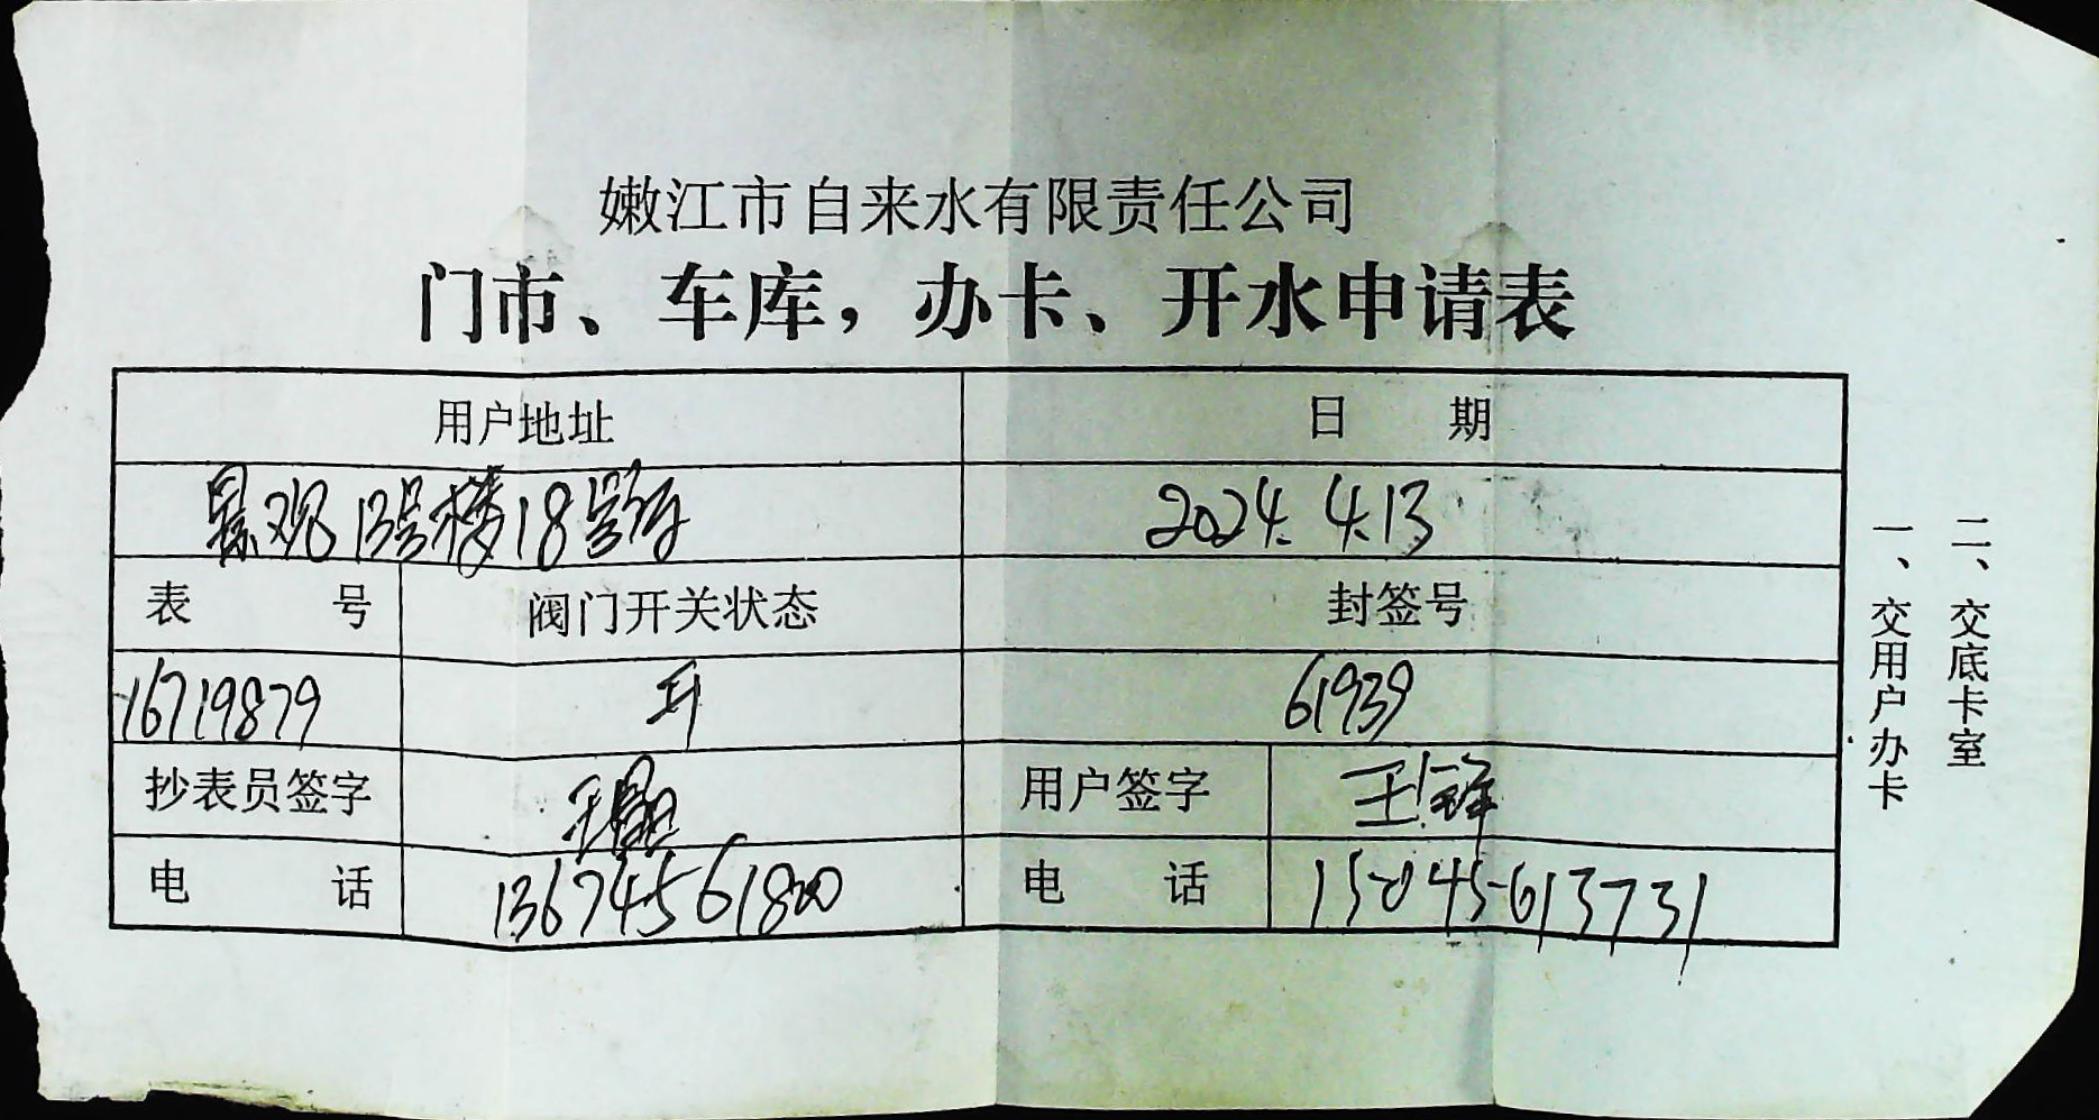 嫩江市自来水有限责任公司
门市、车库，办卡、开水申请表
用户地址 日 期
景观13号楼18号库 2024.4.13
表 号 阀门开关状态 封签号
16719879 开 61939
抄表员签字 用户签字 王锋
电 话 13674561800 电 话 15045613731
一、交用户办卡
二、交底卡室